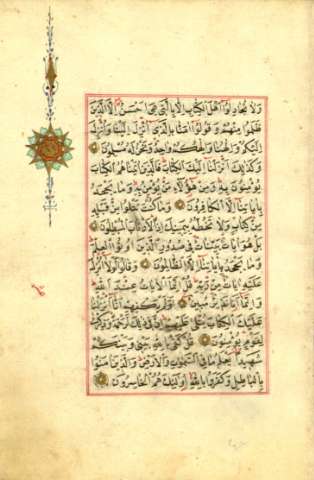 وَلَا تُجَادِلُوا أَهْلَ الْكِتَابِ إِلَّا بِالَّتِي هِيَ أَحْسَنُ إِلَّا الَّذِينَ
ظَلَمُوا مِنْهُمْ وَقُولُوا آمَنَّا بِالَّذِي أُنْزِلَ إِلَيْنَا وَأُنْزِلَ
إِلَيْكُمْ وَإِلَهُنَا وَإِلَهُكُمْ وَاحِدٌ وَنَحْنُ لَهُ مُسْلِمُونَ
وَكَذَلِكَ أَنْزَلْنَا إِلَيْكَ الْكِتَابَ فَالَّذِينَ آتَيْنَاهُمُ الْكِتَابَ
يُؤْمِنُونَ بِهِ وَمِنْ هَؤُلَاءِ مَنْ يُؤْمِنُ بِهِ وَمَا يَجْحَدُ
بِآيَاتِنَا إِلَّا الْكَافِرُونَ وَمَا كُنْتَ تَتْلُوا مِنْ قَبْلِهِ
مِنْ كِتَابٍ وَلَا تَخُطُّهُ بِيَمِينِكَ إِذًا لَارْتَابَ الْمُبْطِلُونَ
بَلْ هُوَ آيَاتٌ بَيِّنَاتٌ فِي صُدُورِ الَّذِينَ أُوتُوا الْعِلْمَ
وَمَا يَجْحَدُ بِآيَاتِنَا إِلَّا الظَّالِمُونَ وَقَالُوا لَوْلَا أُنْزِلَ
عَلَيْهِ آيَاتٌ مِنْ رَبِّهِ قُلْ إِنَّمَا الْآيَاتُ عِنْدَ اللَّهِ
وَإِنَّمَا أَنَا نَذِيرٌ مُبِينٌ أَوَلَمْ يَكْفِهِمْ أَنَّا أَنْزَلْنَا
عَلَيْكَ الْكِتَابَ يُتْلَى عَلَيْهِمْ إِنَّ فِي ذَلِكَ لَرَحْمَةً وَذِكْرَى
لِقَوْمٍ يُؤْمِنُونَ قُلْ كَفَى بِاللَّهِ بَيْنِي وَبَيْنَكُمْ
شَهِيدًا يَعْلَمُ مَا فِي السَّمَوَاتِ وَالْأَرْضِ وَالَّذِينَ آمَنُوا
بِالْبَاطِلِ وَكَفَرُوا بِاللَّهِ أُولَئِكَ هُمُ الْخَاسِرُونَ